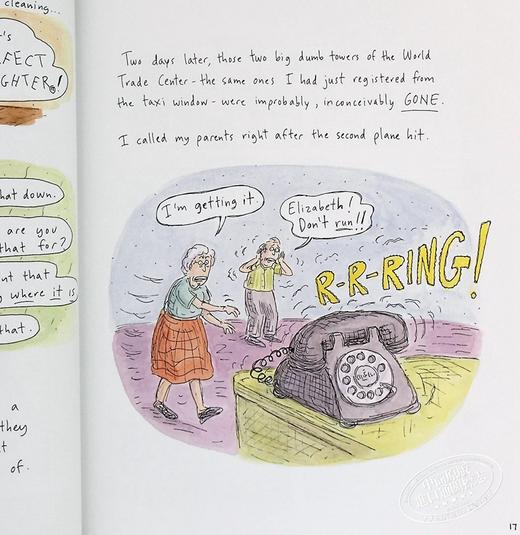 cleaning...
GHTER!
hat down.
are you
that for?
ut that
where it is
that.
a
they
t
of.
Two days later, those two big dumb towers of the World
Trade Center - the same ones I had just registered from
the taxi window - were improbably, inconceivably GONE.
I called my parents right after the second plane hit.
I'm getting it.
Elizabeth!
Don't run!!
R-R-RING!
17